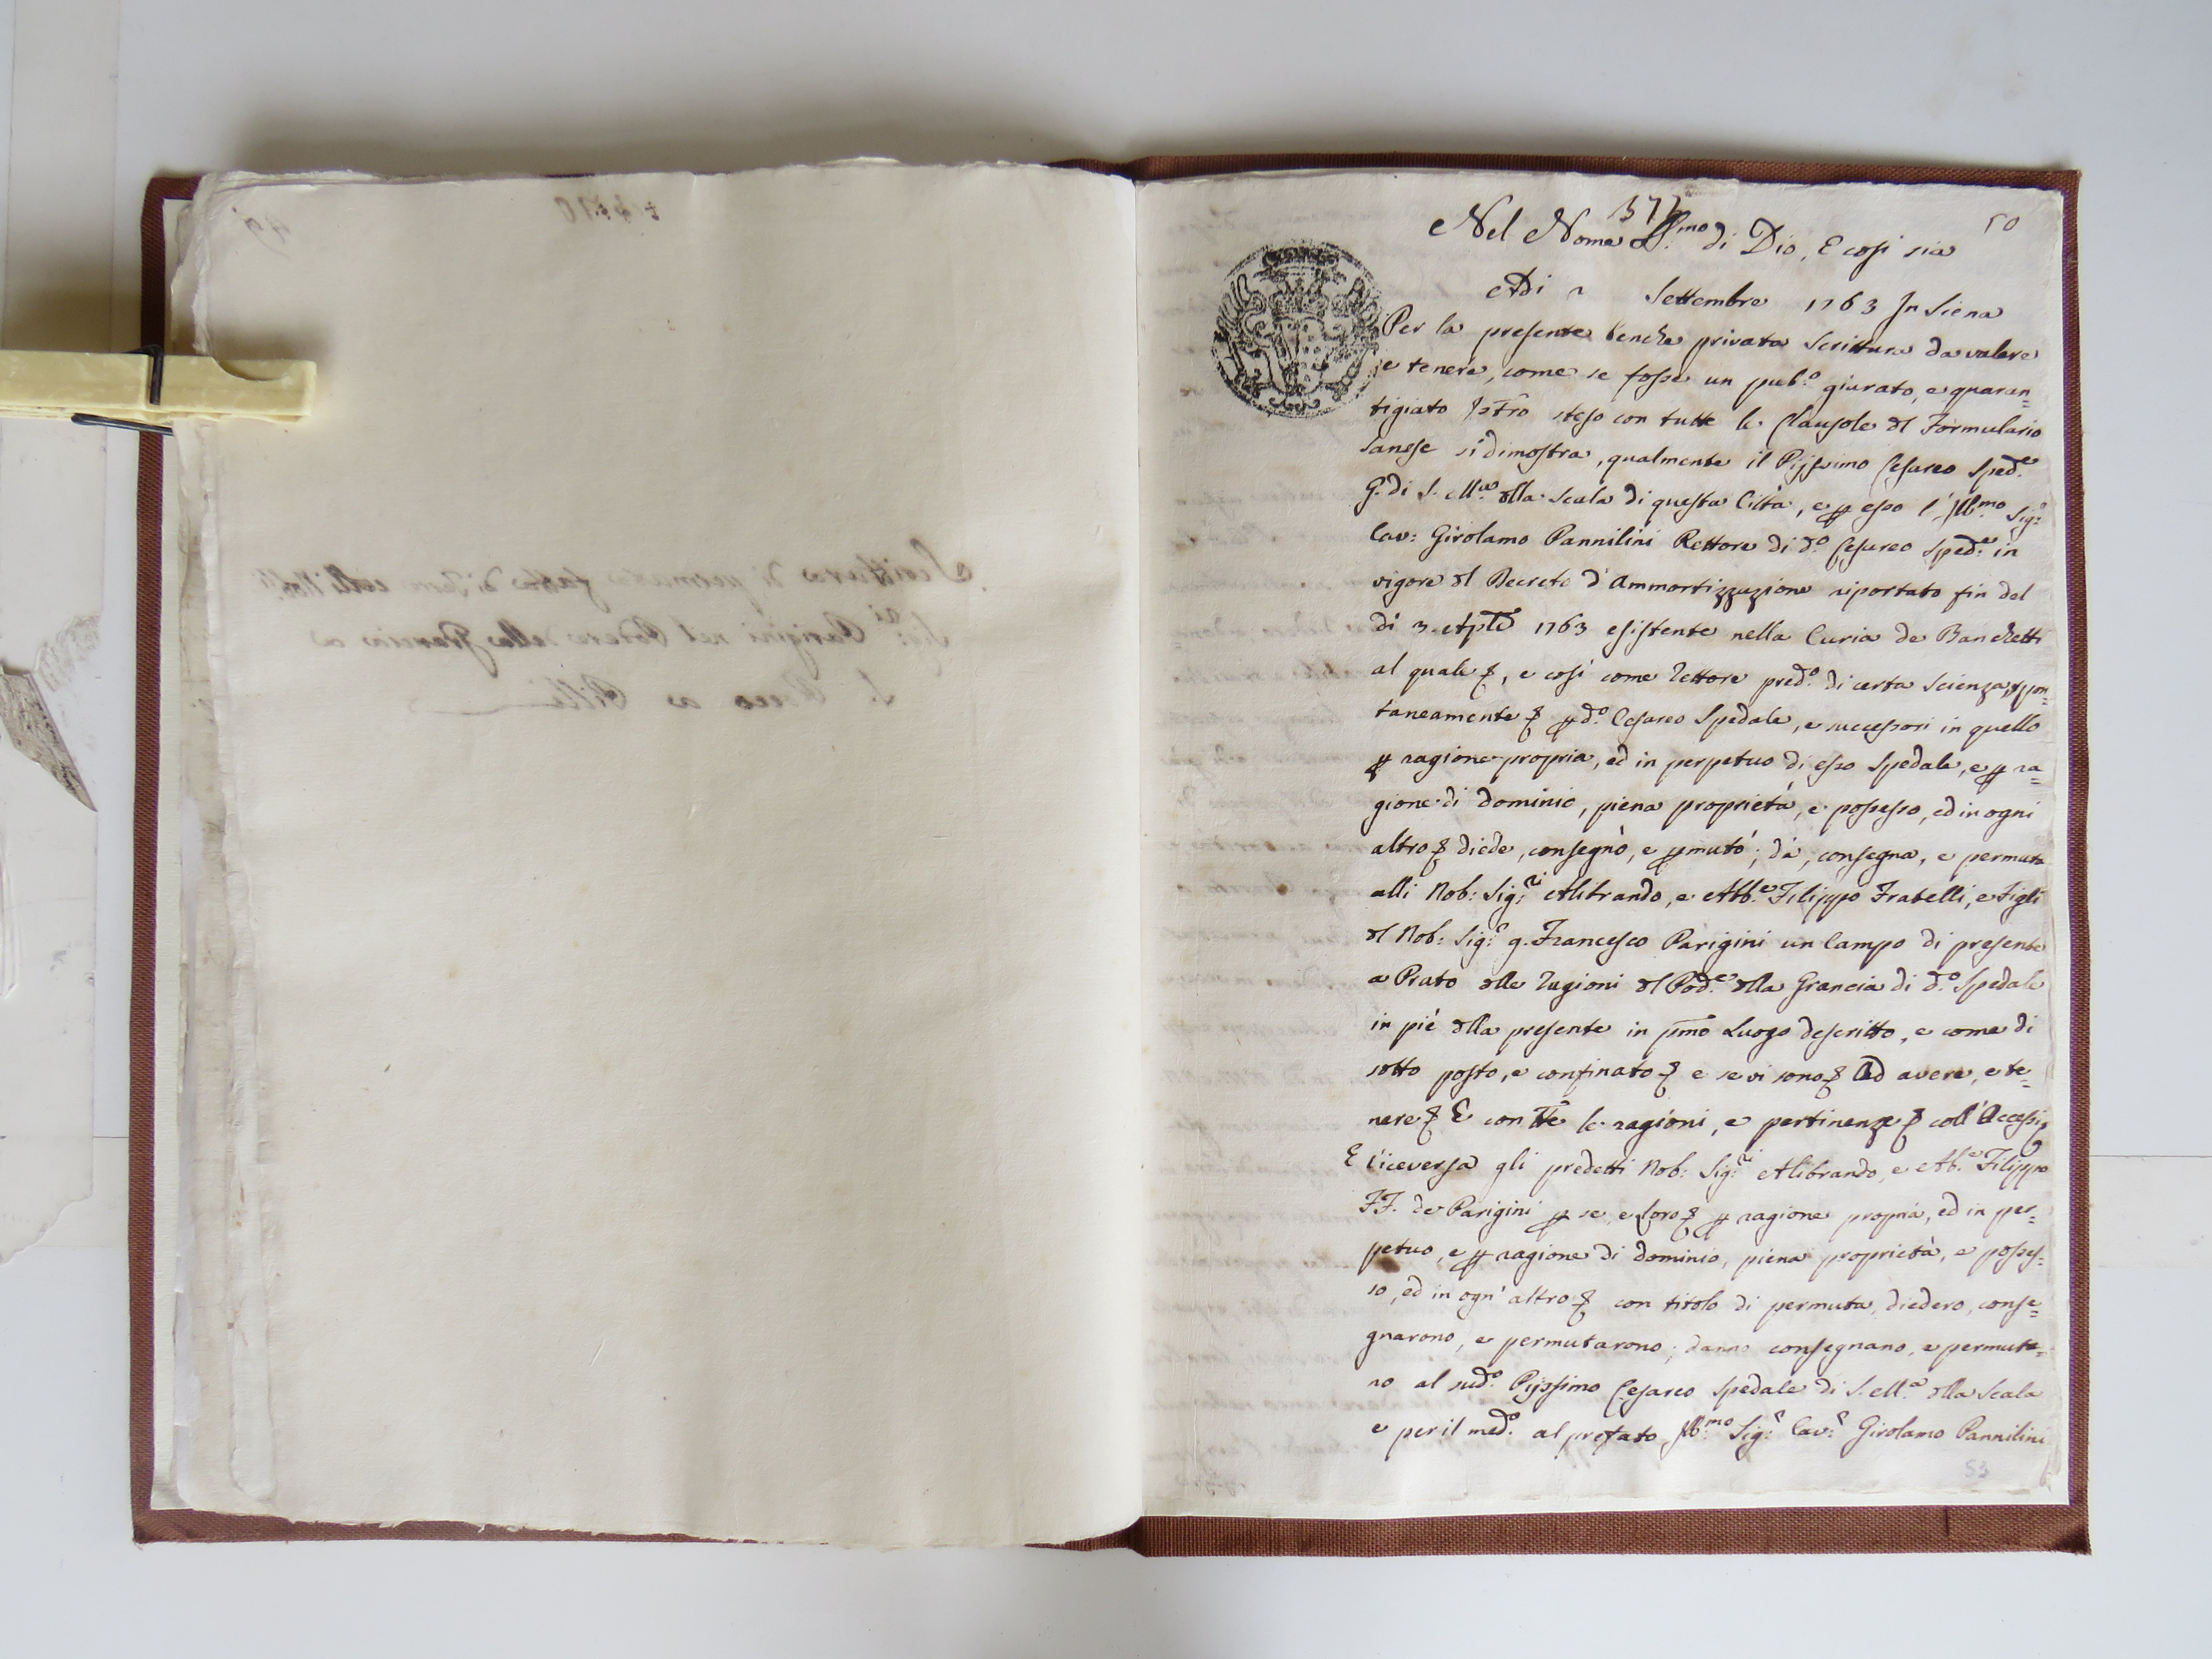 377
50
Nel Nome SS.mo di Dio, E cosi sia
Adi Settembre 1763 In Siena
Per la presente benche privata Scrittura da valere
e tenere, come se fosse un pub.o giurato, e guaran=
tigiato Istro steso con tutte le Clausole dl Formulario
sanese si dimostra, qualmente il Pijssimo Cesareo Sped.e
G. di S. M.a dlla Scala di questa Città, e p esso l'Ill.mo Sig.r
Cav: Girolamo Pannilini Rettore di d.o Cesareo Sped.e in
vigore dl Decreto d'Ammortizzazione riportato fin del
di 3. Aple 1763 esistente nella Curia de Banchetti
al quale &, e così come Rettore pred.o di certa Scienza, spon=
taneamente & p d.o Cesareo Spedale, e successori in quello
p ragione propria, ed in perpetuo di esso Spedale, e p ra=
gione di dominio, piena proprietá, e possesso, ed in ogni
altro & diede, consegnò, e pmutó; dà, consegna, e permuta
alli Nob: Sig:ri Alibrando, e Abb.e Filippo Fratelli, e Figli
dl Nob: Sig:r q. Francesco Parigini un Campo di presente
a Prato dlle ragioni dl Pod.e dlla Grancia di d.o Spedale
in piè dlla presente in pmo Luogo descritto, e come di
sotto posto, e confinato & e se vi sono & Ad avere, e te=
nere & E con tte le ragioni, e pertinenze & coll'Accessi &
E Viceversa gli predetti Nob: Sig:ri Alibrando, e Ab.e Filippo
FF. de Parigini p se, e loro & p ragione propria, ed in per=
petuo, e p ragione di dominio, piena proprietà, e posses=
so, ed in ogn'altro & con titolo di permuta, diedero, conse=
gnarono, e permutarono; danno consegnano, e permuta=
no al sud.o Pijssimo Cesareo Spedale di S. M.a dlla Scala
e per il med.o al prefato Ill.mo Sig.r Cav.r Girolamo Pannilini
53